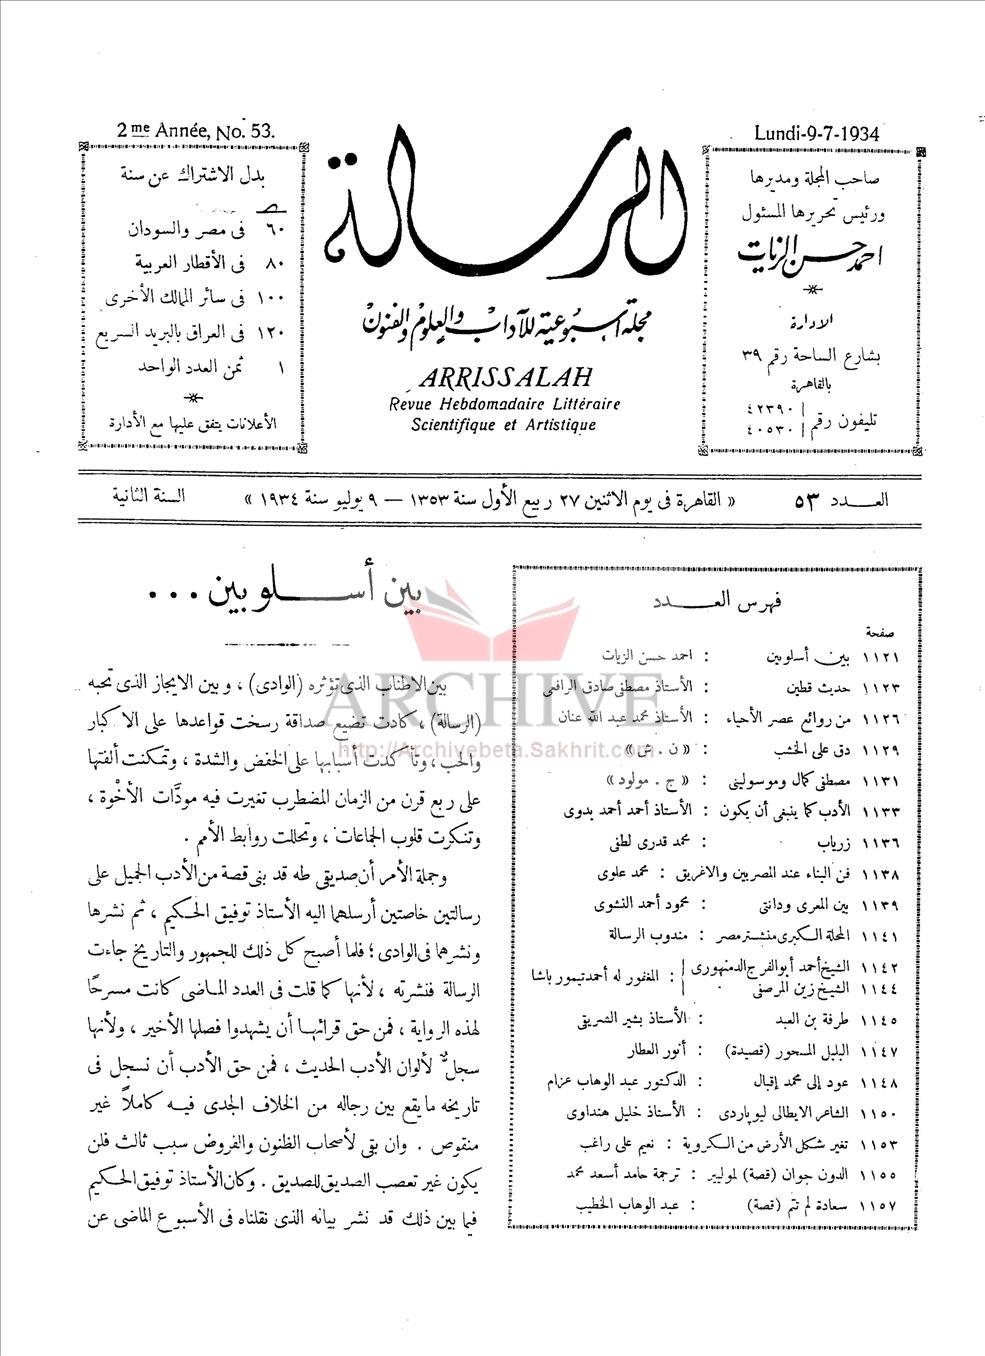 2me Année, No. 53.
Lundi-9-7-1934
صاحب المجلة ومديرها
ورئيس تحريرها المسئول
احمد حسن الزيات
الادارة
بشارع الساحة رقم ٣٩
بالقاهرة
تليفون رقم ٤٢٣٩٠
٤٠٥٣٠
الرسالة
مجلة أسبوعية للآداب والعلوم والفنون
ARRISSALAH
Revue Hebdomadaire Littéraire
Scientifique et Artistique
بدل الاشتراك عن سنة
٦٠ فى مصر والسودان
٨٠ فى الأقطار العربية
١٠٠ فى سائر الممالك الأخرى
١٢٠ فى العراق بالبريد السريع
١ ثمن العدد الواحد
الأعلانات يتفق عليها مع الأدارة
العـــدد ٥٣
« القاهرة فى يوم الاثنين ٢٧ ربيع الأول سنة ١٣٥٣ — ٩ يوليو سنة ١٩٣٤ »
السنة الثانية
فهرس العـــدد
صفحة
١١٢١ بين أسلوبين : احمد حسن الزيات
١١٢٣ حديث قطين : الأستاذ مصطفى صادق الرافعى
١١٢٦ من روائع عصر الأحياء : الأستاذ محمد عبد الله عنان
١١٢٩ دق على الخشب : « ن . ش »
١١٣١ مصطفى كمال وموسولينى : « ج . مولود »
١١٣٣ الأدب كما ينبغى أن يكون : الأستاذ أحمد أحمد بدوى
١١٣٦ زرياب : محمد قدرى لطفى
١١٣٨ فن البناء عند المصريين والاغريق : محمد علوى
١١٣٩ بين المعرى ودانتى : محمود أحمد النشوى
١١٤١ المحلة الكبرى منشستر مصر : مندوب الرسالة
١١٤٢ الشيخ أحمد أبو الفرج الدمنهورى
١١٤٤ الشيخ زين المرصفى : المغفور له أحمد تيمور باشا
١١٤٥ طرفة بن العبد : الأستاذ بشير الشريقى
١١٤٧ البلبل المسحور (قصيدة) : أنور العطار
١١٤٨ عود إلى محمد إقبال : الدكتور عبد الوهاب عزام
١١٥٠ الشاعر الايطالى ليوپاردى : الأستاذ خليل هنداوى
١١٥٣ تغير شكل الأرض من الكروية : نعيم على راغب
١١٥٥ الدون جوان (قصة) لموليير : ترجمة حامد أسعد محمد
١١٥٧ سعادة لم تتم (قصة) : عبد الوهاب الخطيب
بين أســلوبين ...
بين الاطناب الذى تؤثره (الوادى) ، وبين الايجاز الذى تحبه
(الرسالة) ، كادت تضيع صداقة رسخت قواعدها على الاكبار
والحب ، وتأكدت أسبابها على الخفض والشدة ، وتمكنت ألفتها
على ربع قرن من الزمان المضطرب تغيرت فيه مودَّات الأخْوة ،
وتنكرت قلوب الجماعات ، وتحللت روابط الأمم .
وجملة الأمر أن صديقى طه قد بنى قصة من الأدب الجميل على
رسالتين خاصتين أرسلهما اليه الأستاذ توفيق الحكيم ، ثم نشرها
ونشرهما فى الوادى ؛ فلما أصبح كل ذلك للجمهور والتاريخ جاءت
الرسالة فنشرته ، لأنها كما قلت فى العدد الماضى كانت مسرحًا
لهذه الرواية ، فمن حق قرائها أن يشهدوا فصلها الأخير ، ولأنها
سجلٌ لألوان الأدب الحديث ، فمن حق الأدب أن نسجل فى
تاريخه ما يقع بين رجاله من الخلاف المجدى فيه كاملاً غير
منقوص . وان بقى لأصحاب الظنون والفروض سبب ثالث فلن
يكون غير تعصب الصديق للصديق . وكان الأستاذ توفيق الحكيم
فيما بين ذلك قد نشر بيانه الذى نقلناه فى الأسبوع الماضى عن
ARCHIVE
http://Archivebeta.Sakhrit.com